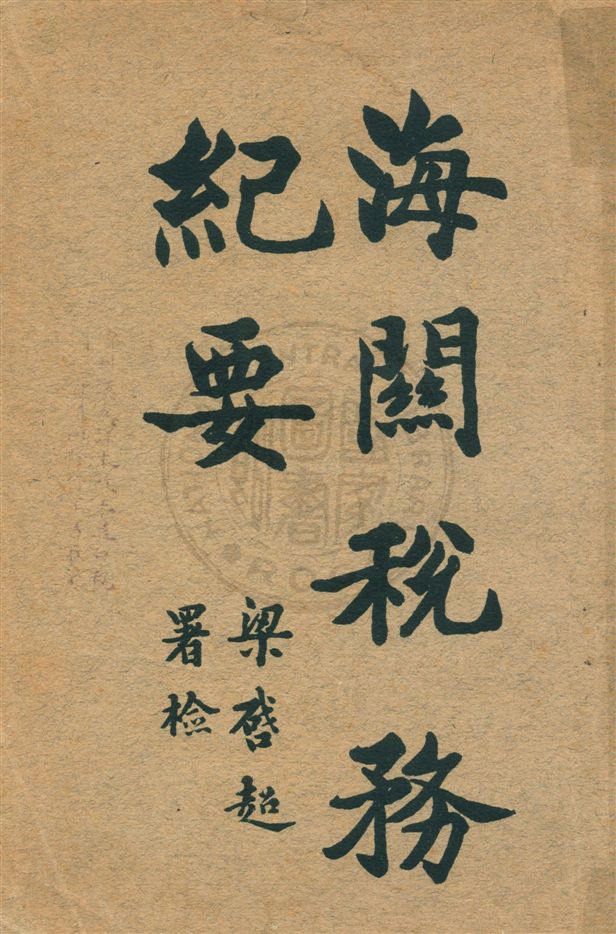 海關税務
紀要
梁啓超
署檢